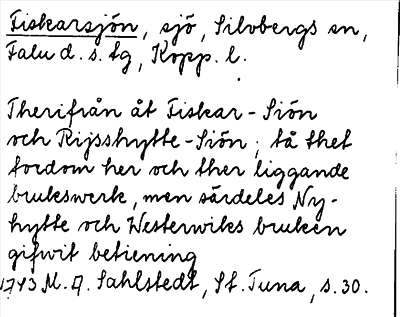 Fiskarsjön, sjö, Silvbergs sn,
Falu d. s. tg, Kopp. l.
Therifrån åt Fiskar-Siön
och Rijsshytte-Siön; tå thet
fordom her och ther liggande
brukswerk, men särdeles Ny-
hytte och Westerwiks bruken
gifwit betiening
1743 M. A. Sahlstedt, St. Tuna, s. 30.